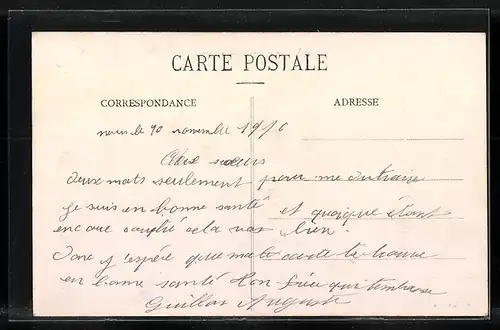 CARTE POSTALE
CORRESPONDANCE
ADRESSE
le novembre 1916
sœurs
deux mots seulement pour me
je suis en bonne santé et quoique étant
encore cela vas bien.
Donc j'espére que ma carte te trouve
en bonne santé ton qui t'embrasse
Guillos Auguste